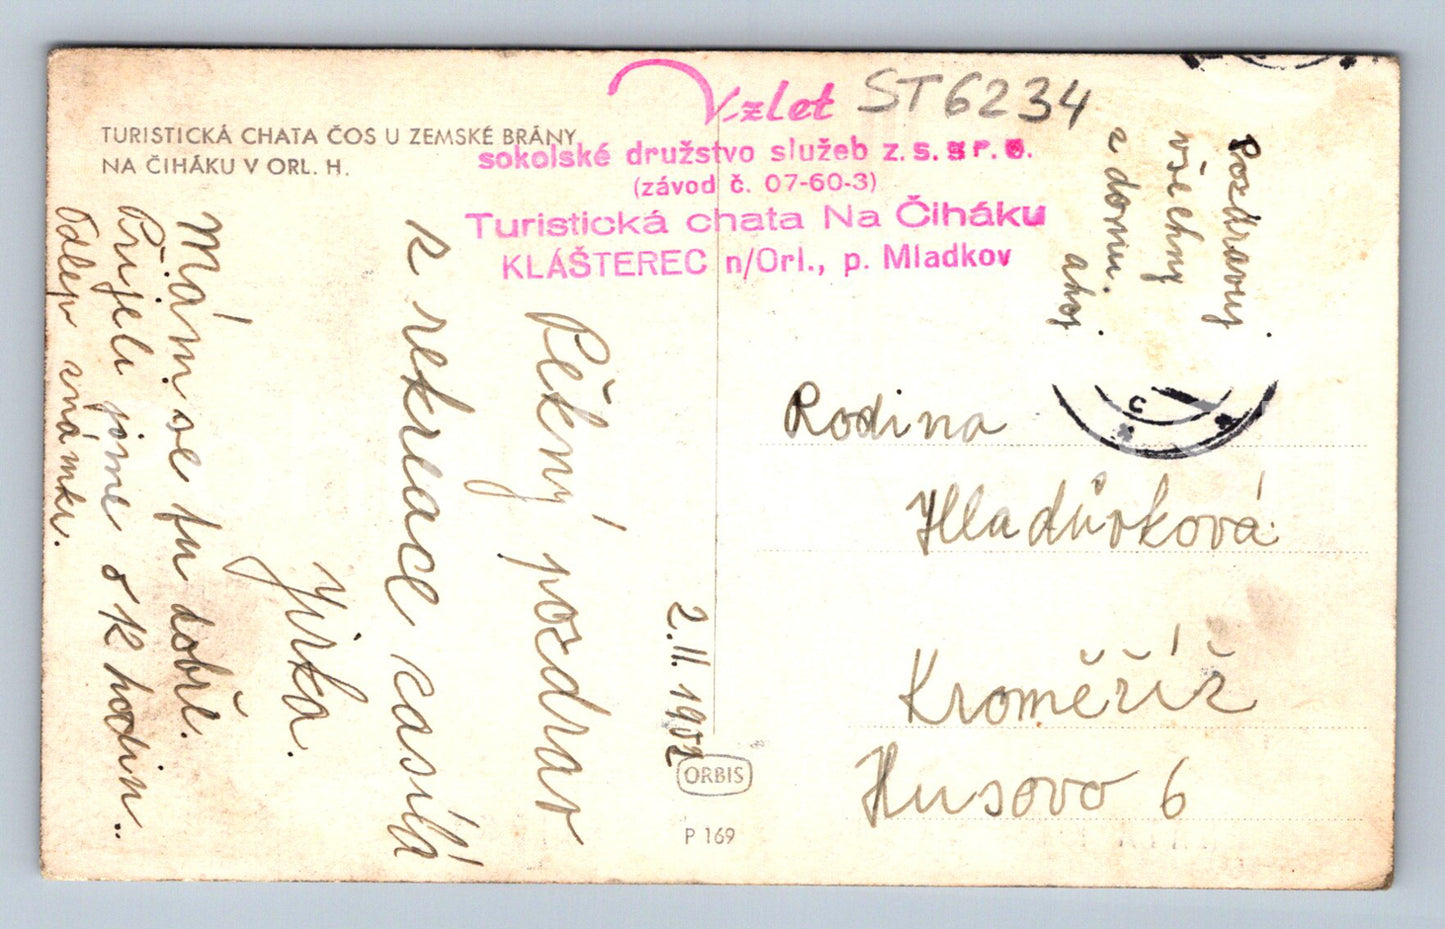 TURISTICKÁ CHATA ČOS U ZEMSKÉ BRÁNY
NA ČIHÁKU V ORL. H.
Vzlet
ST6234
sokolské družstvo služeb z. s. s r. o.
(závod č. 07-60-3)
Turistická chata Na Čiháku
KLÁŠTEREC n/Orl., p. Mladkov
Pozdravuj
všechny
z domu.
ahoj
Pěkný pozdrav
z rekreace zasílá
Jirka.
Mám se tu dobře.
Přijeli jsme o 12 hodin..
Odlep známku.
2.II.1952
Rodina
Hladůvková
Kroměříž
Husovo 6
C
ORBIS
P 169